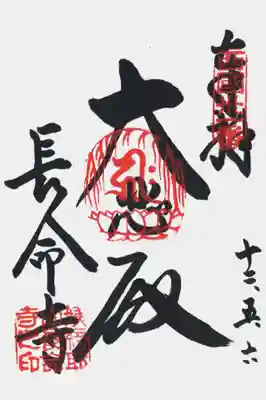 奉拝
十三、五、六
大悲殿
長命寺